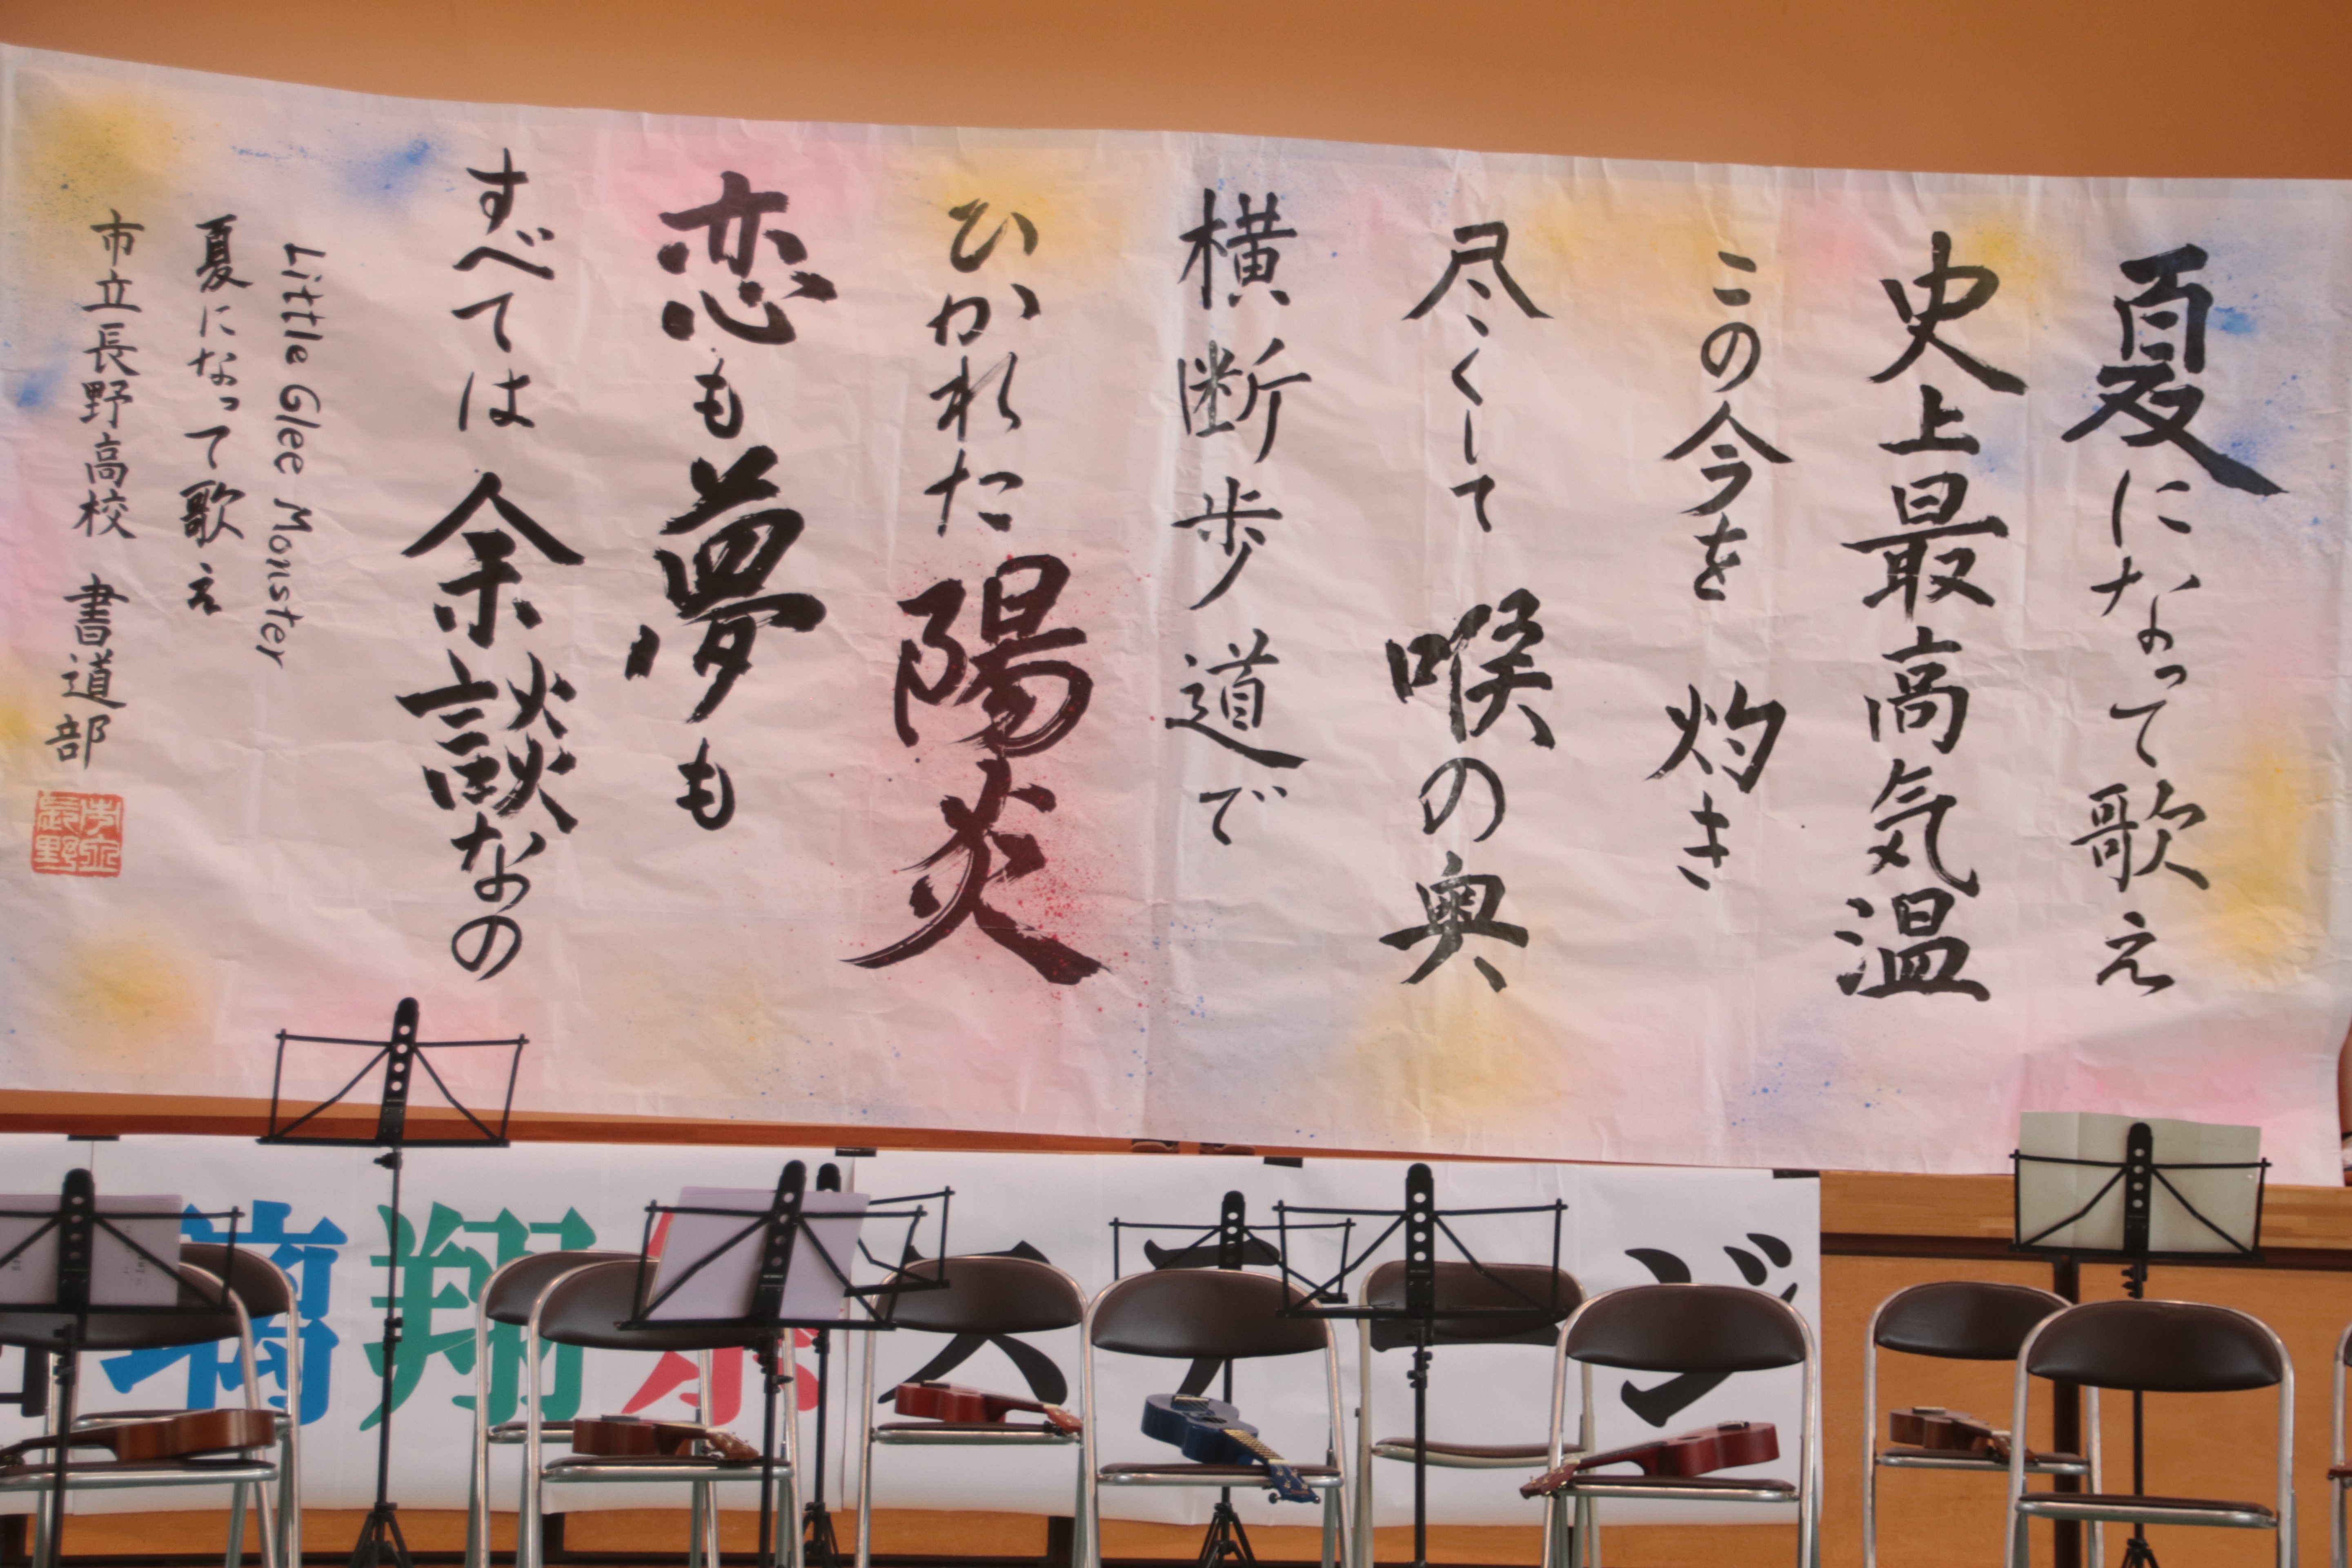 夏になって歌え
史上最高気温
この今を 灼き
尽くして 喉の奥
横断歩道で
ひかれた陽炎
恋も夢も
すべては余談なの
Little Glee Monster
夏になって歌え
市立長野高校 書道部
市立長野
翔
ステージ